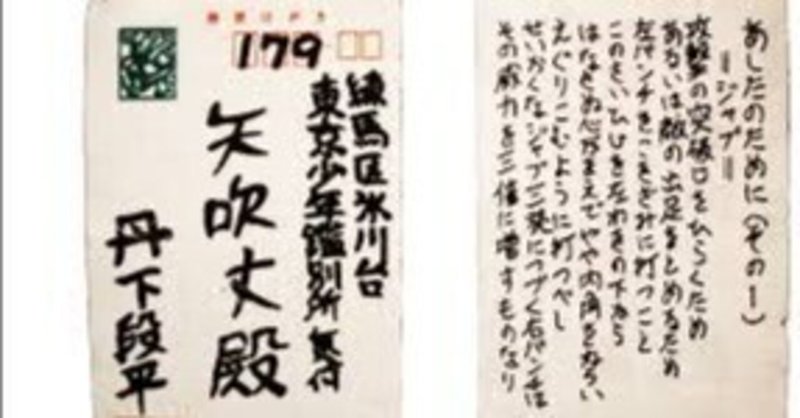 郵便はがき
179
練馬区氷川台
東京少年鑑別所 気付
矢吹丈殿
丹下段平
あしたのために(その一)
=ジャブ=
攻撃の突破口をひらくため
あるいは敵の出足をとめるため
左パンチをこきざみに打つこと
このさいひじを左わきの下から
はなさぬ心がまえでやや内角をねらい
えぐりこむように打つべし
せいかくなジャブ三発につづく右パンチは
その威力を三倍に増すものなり